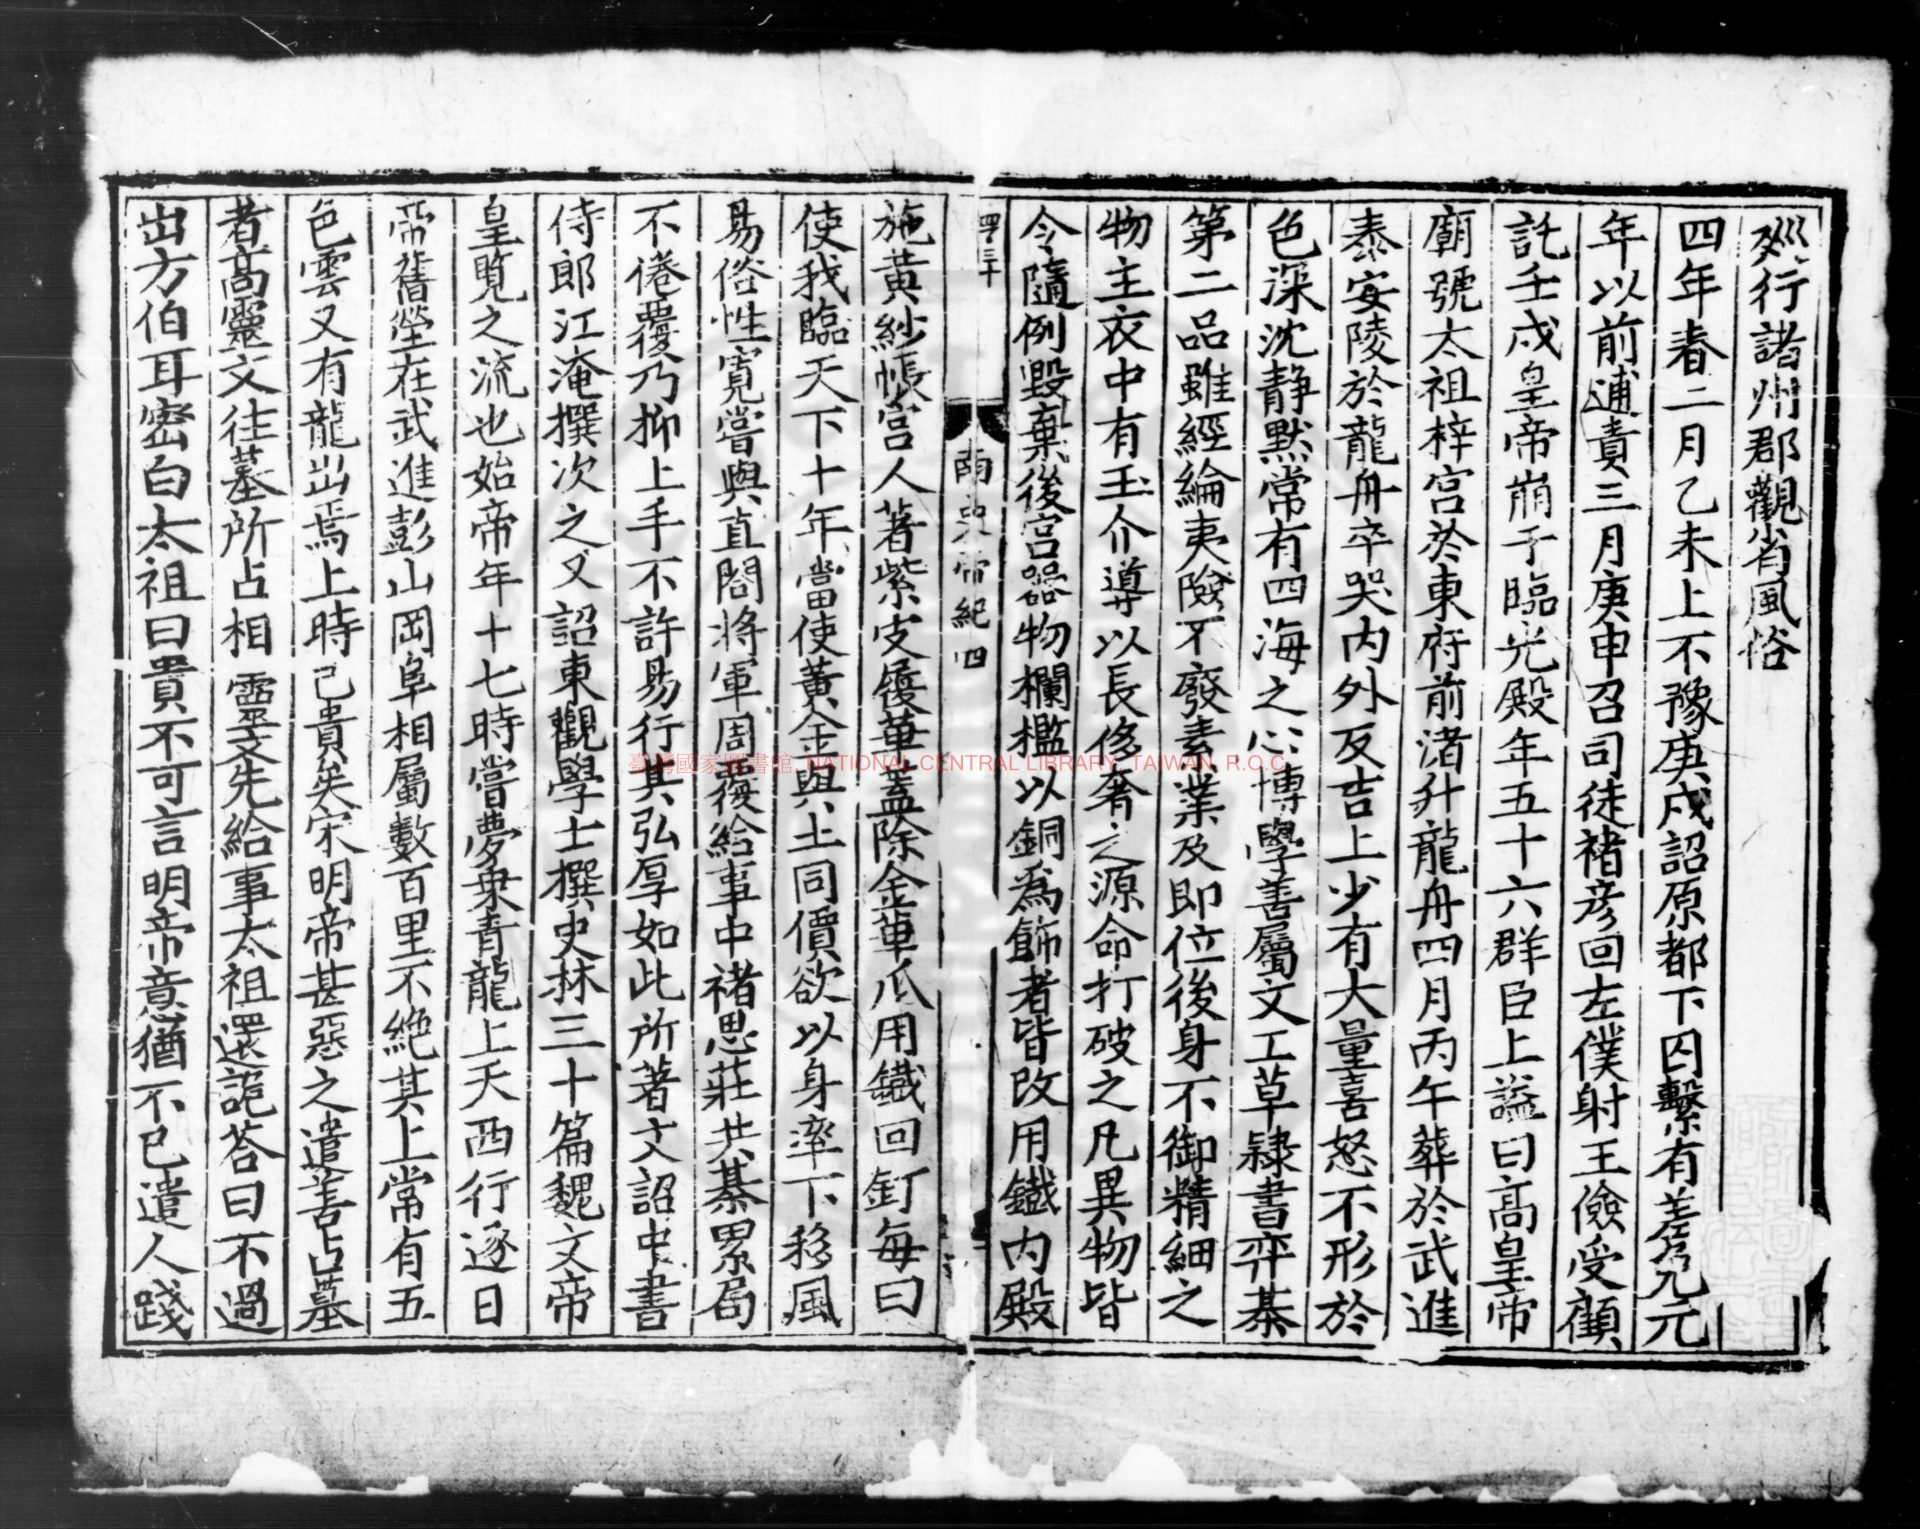 廵行諸州郡觀省風俗
四年春二月乙未上不豫庚戍詔原都下囚繫有差免元
年以前逋責三月庚申召司徒禇彦回左僕射王儉受顧
託壬戍皇帝崩于臨光殿年五十六群臣上謚曰高皇帝
廟號太祖梓宫於東府前渚升龍舟四月丙午葬於武進
泰安陵於龍舟卒哭内外反吉上少有大量喜怒不形於
色深沈静黙常有四海之心博學善屬文工草隷書弈棊
第二品雖經綸夷險不廢素業及即位後身不御精細之
物主衣中有玉介導以長侈奢之源命打破之凡異物皆
令隨例毀棄後宫器物欄檻以銅爲飾者皆改用鐵内殿
四三十
南史帝紀四
施黃紗帳宫人著紫皮履華蓋除金華爪用鐵回釘每曰
使我臨天下十年當使黄金與土同價欲以身率下移風
易俗性寛嘗與直閤將軍周覆給事中禇思莊共棊累局
不倦覆乃抑上手不許易行其弘厚如此所著文詔中書
侍郎江淹撰次之又詔東觀學士撰史林三十篇魏文帝
皇覽之流也始帝年十七時嘗夢乗青龍上天西行逐日
帝舊塋在武進彭山岡阜相屬數百里不絶其上常有五
色雲又有龍出焉上時已貴矣宋明帝甚惡之遣善占墓
者髙靈文往墓所占相靈文先給事太祖還詭荅曰不過
出方伯耳密白太祖曰貴不可言明帝意猶不已遣人踐
臺灣國家圖書館, NATIONAL CENTRAL LIBRARY, TAIWAN, R.O.C.